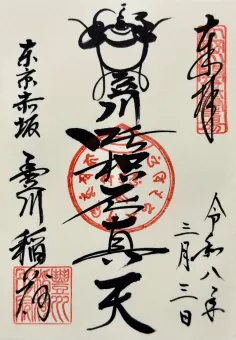 奉拝
豊川吒枳尼真天
東京赤坂 豊川稲荷
令和八年
三月三日